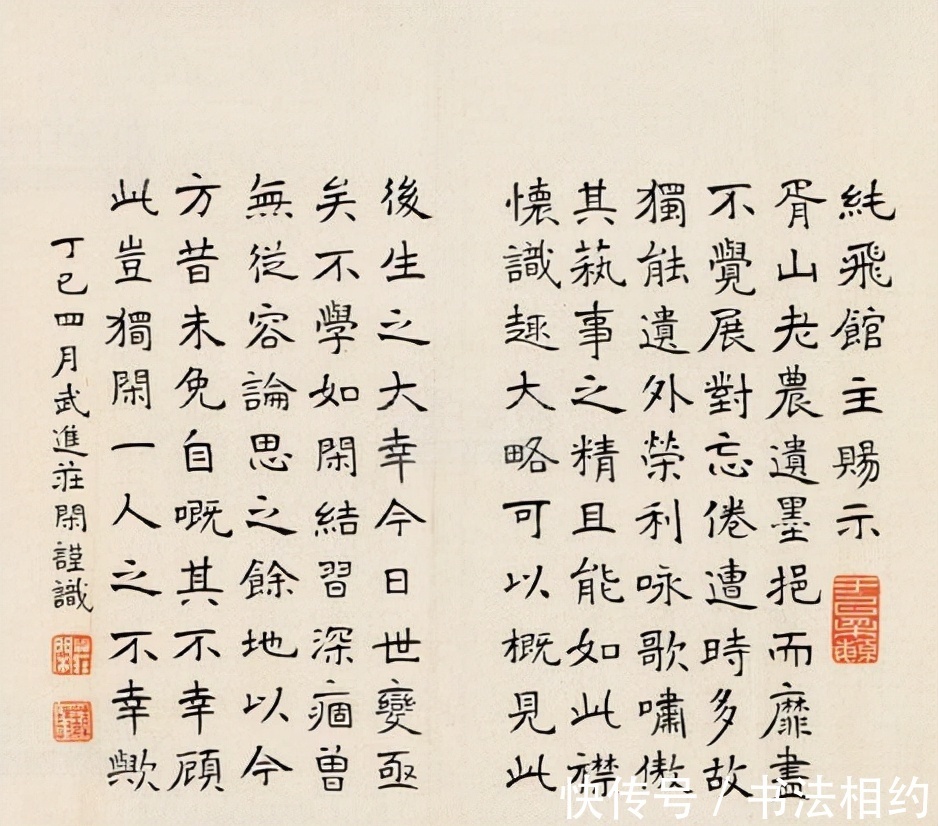 純飛館主賜示
胥山老農遺墨挹而靡盡
不覺展對忘倦遭時多故
獨能遺外榮利咏歌嘯傲
其蓺事之精且能如此襟
懐識趣大略可以概見此
後生之大幸今日世變亟
矣不學如閑結習深痼曾
無從容論思之餘地以今
方昔未免自嘅其不幸顧
此豈獨閑一人之不幸歟
丁巳四月武進莊閑謹識
快传号/书法相约